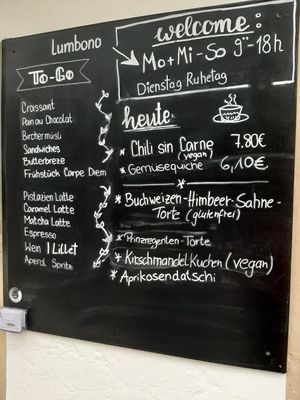 Lumbono
To-Go
Croissant
Pain au Chocolat
Birchermüsli
Sandwiches
Butterbreze
Frühstück Carpe Diem
Pistazien Latte
Caramel Latte
Matcha Latte
Espresso
Wein | Lillet
Aperol Spritz
welcome:
Mo+Mi-So 9°°-18h
Dienstag Ruhetag
heute:
* Chili sin Carne 7.80€
(vegan)
* Gemüsequiche 6,10€
*
* Buchweizen-Himbeer-Sahne-
Torte (glutenfrei)
* Prinzregenten-Torte
* Kirschmandelkuchen (vegan)
* Aprikosendatschi